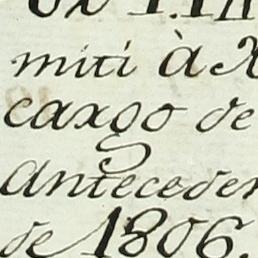 miti à
cargo de
Anteceden
de 1806.